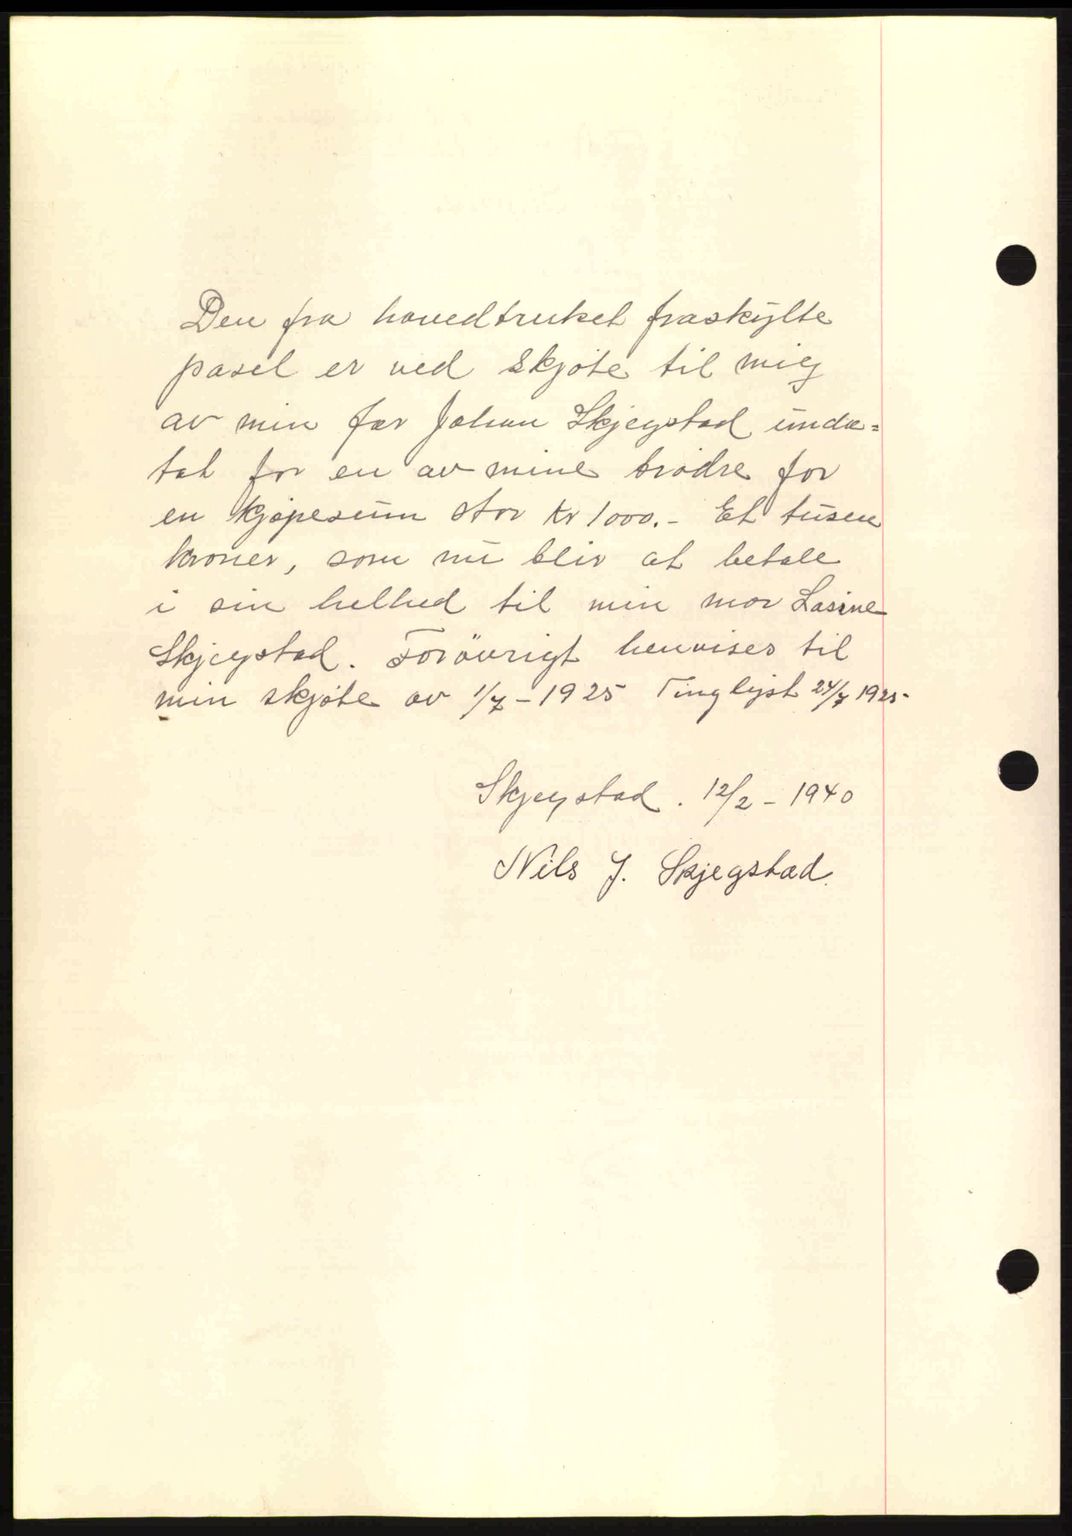 Den fra hovedbruket fraskylte
pasel er ved skjøte til mig
av min far Johan Skjegstad unda=
tat for en av mine brødre for
en kjøpesum stor kr 1000.- Et tusen
kroner, som nu blir at betale
i sin helhed til min mor Lasine
Skjegstad. Forøvrigt henvises til
min skjøte av 1/7-1925 Tinglyst 24/7 1925-
Skjegstad. 12/2-1940
Nils J. Skjegstad.